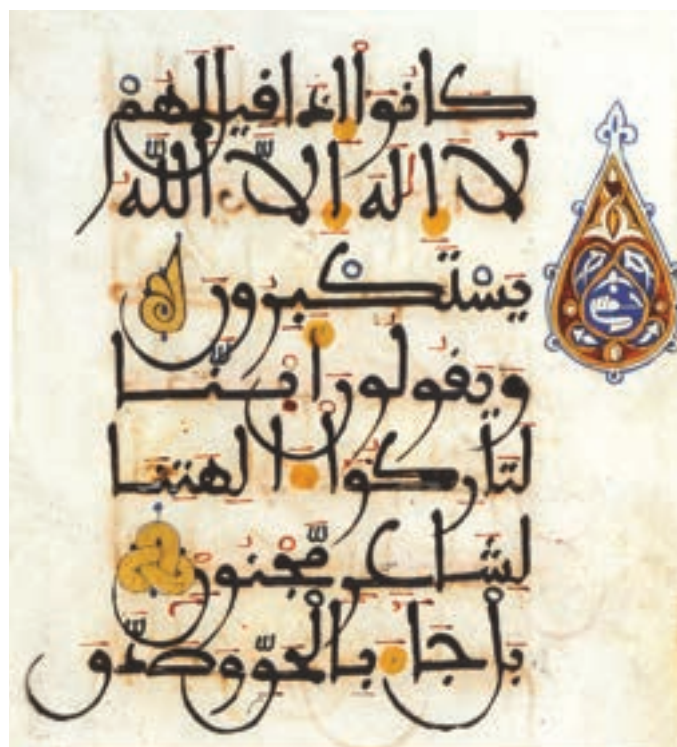 كانوا إذا قيل لهم
لا إله إلا الله
يستكبرون
ويقولون أينا
لتاركوا ءالهتنا
لشاعر مّجنون
بل جاء بالحقّ وصدّق